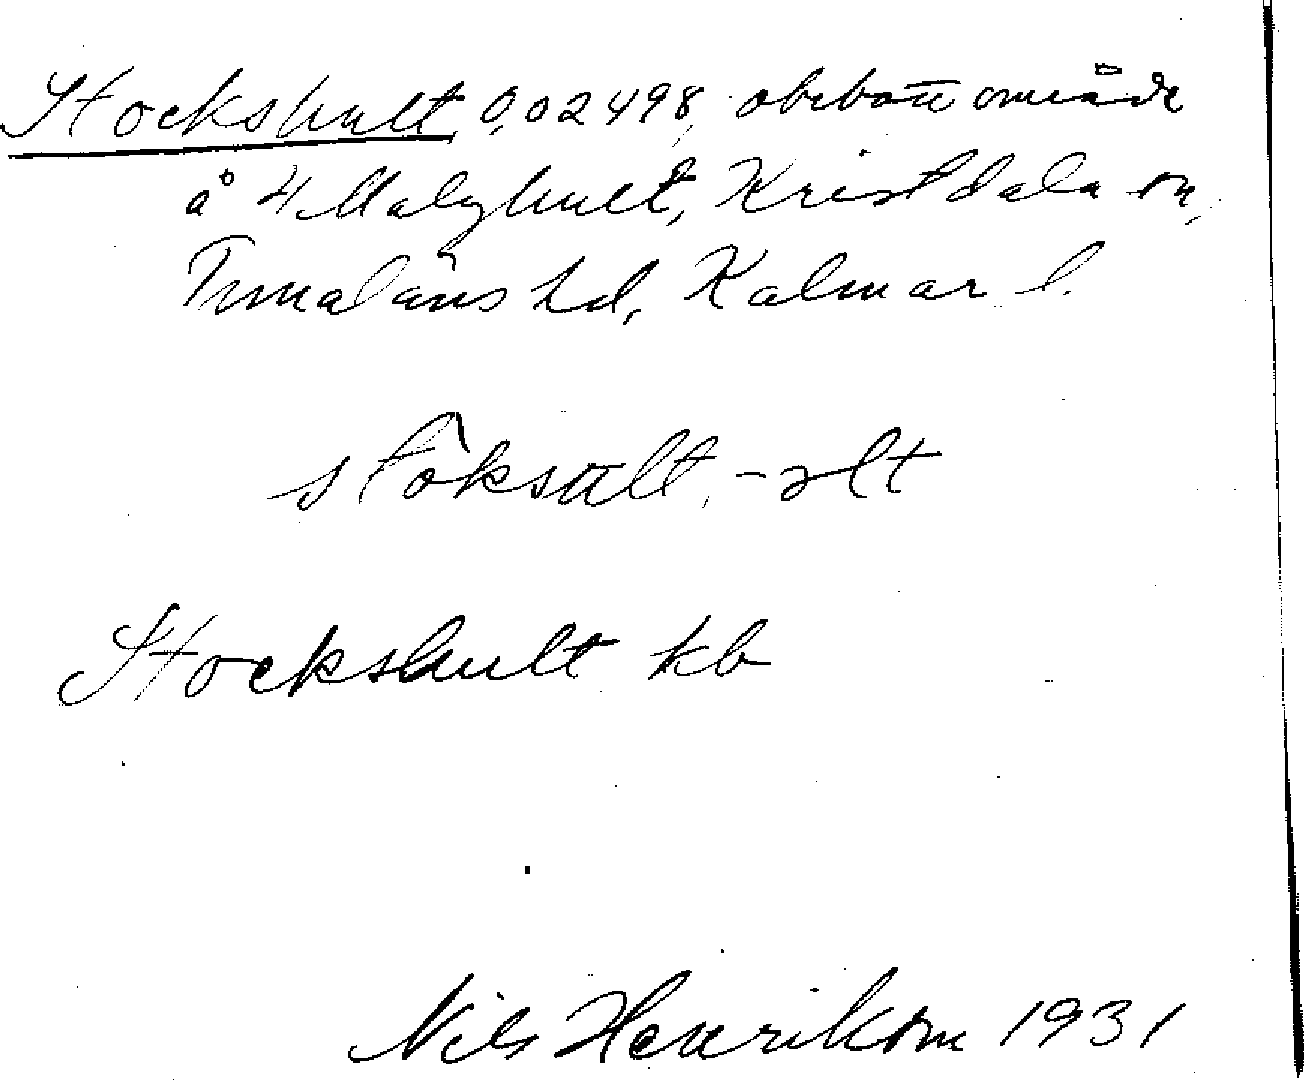 Stockshult, 0,02498, obebott område
å 4 Malghult, Kristdala sn,
Tunaläns hd, Kalmar l.
stòksult, -ɔlt
Stockshult kb
Nils Henrikson 1931